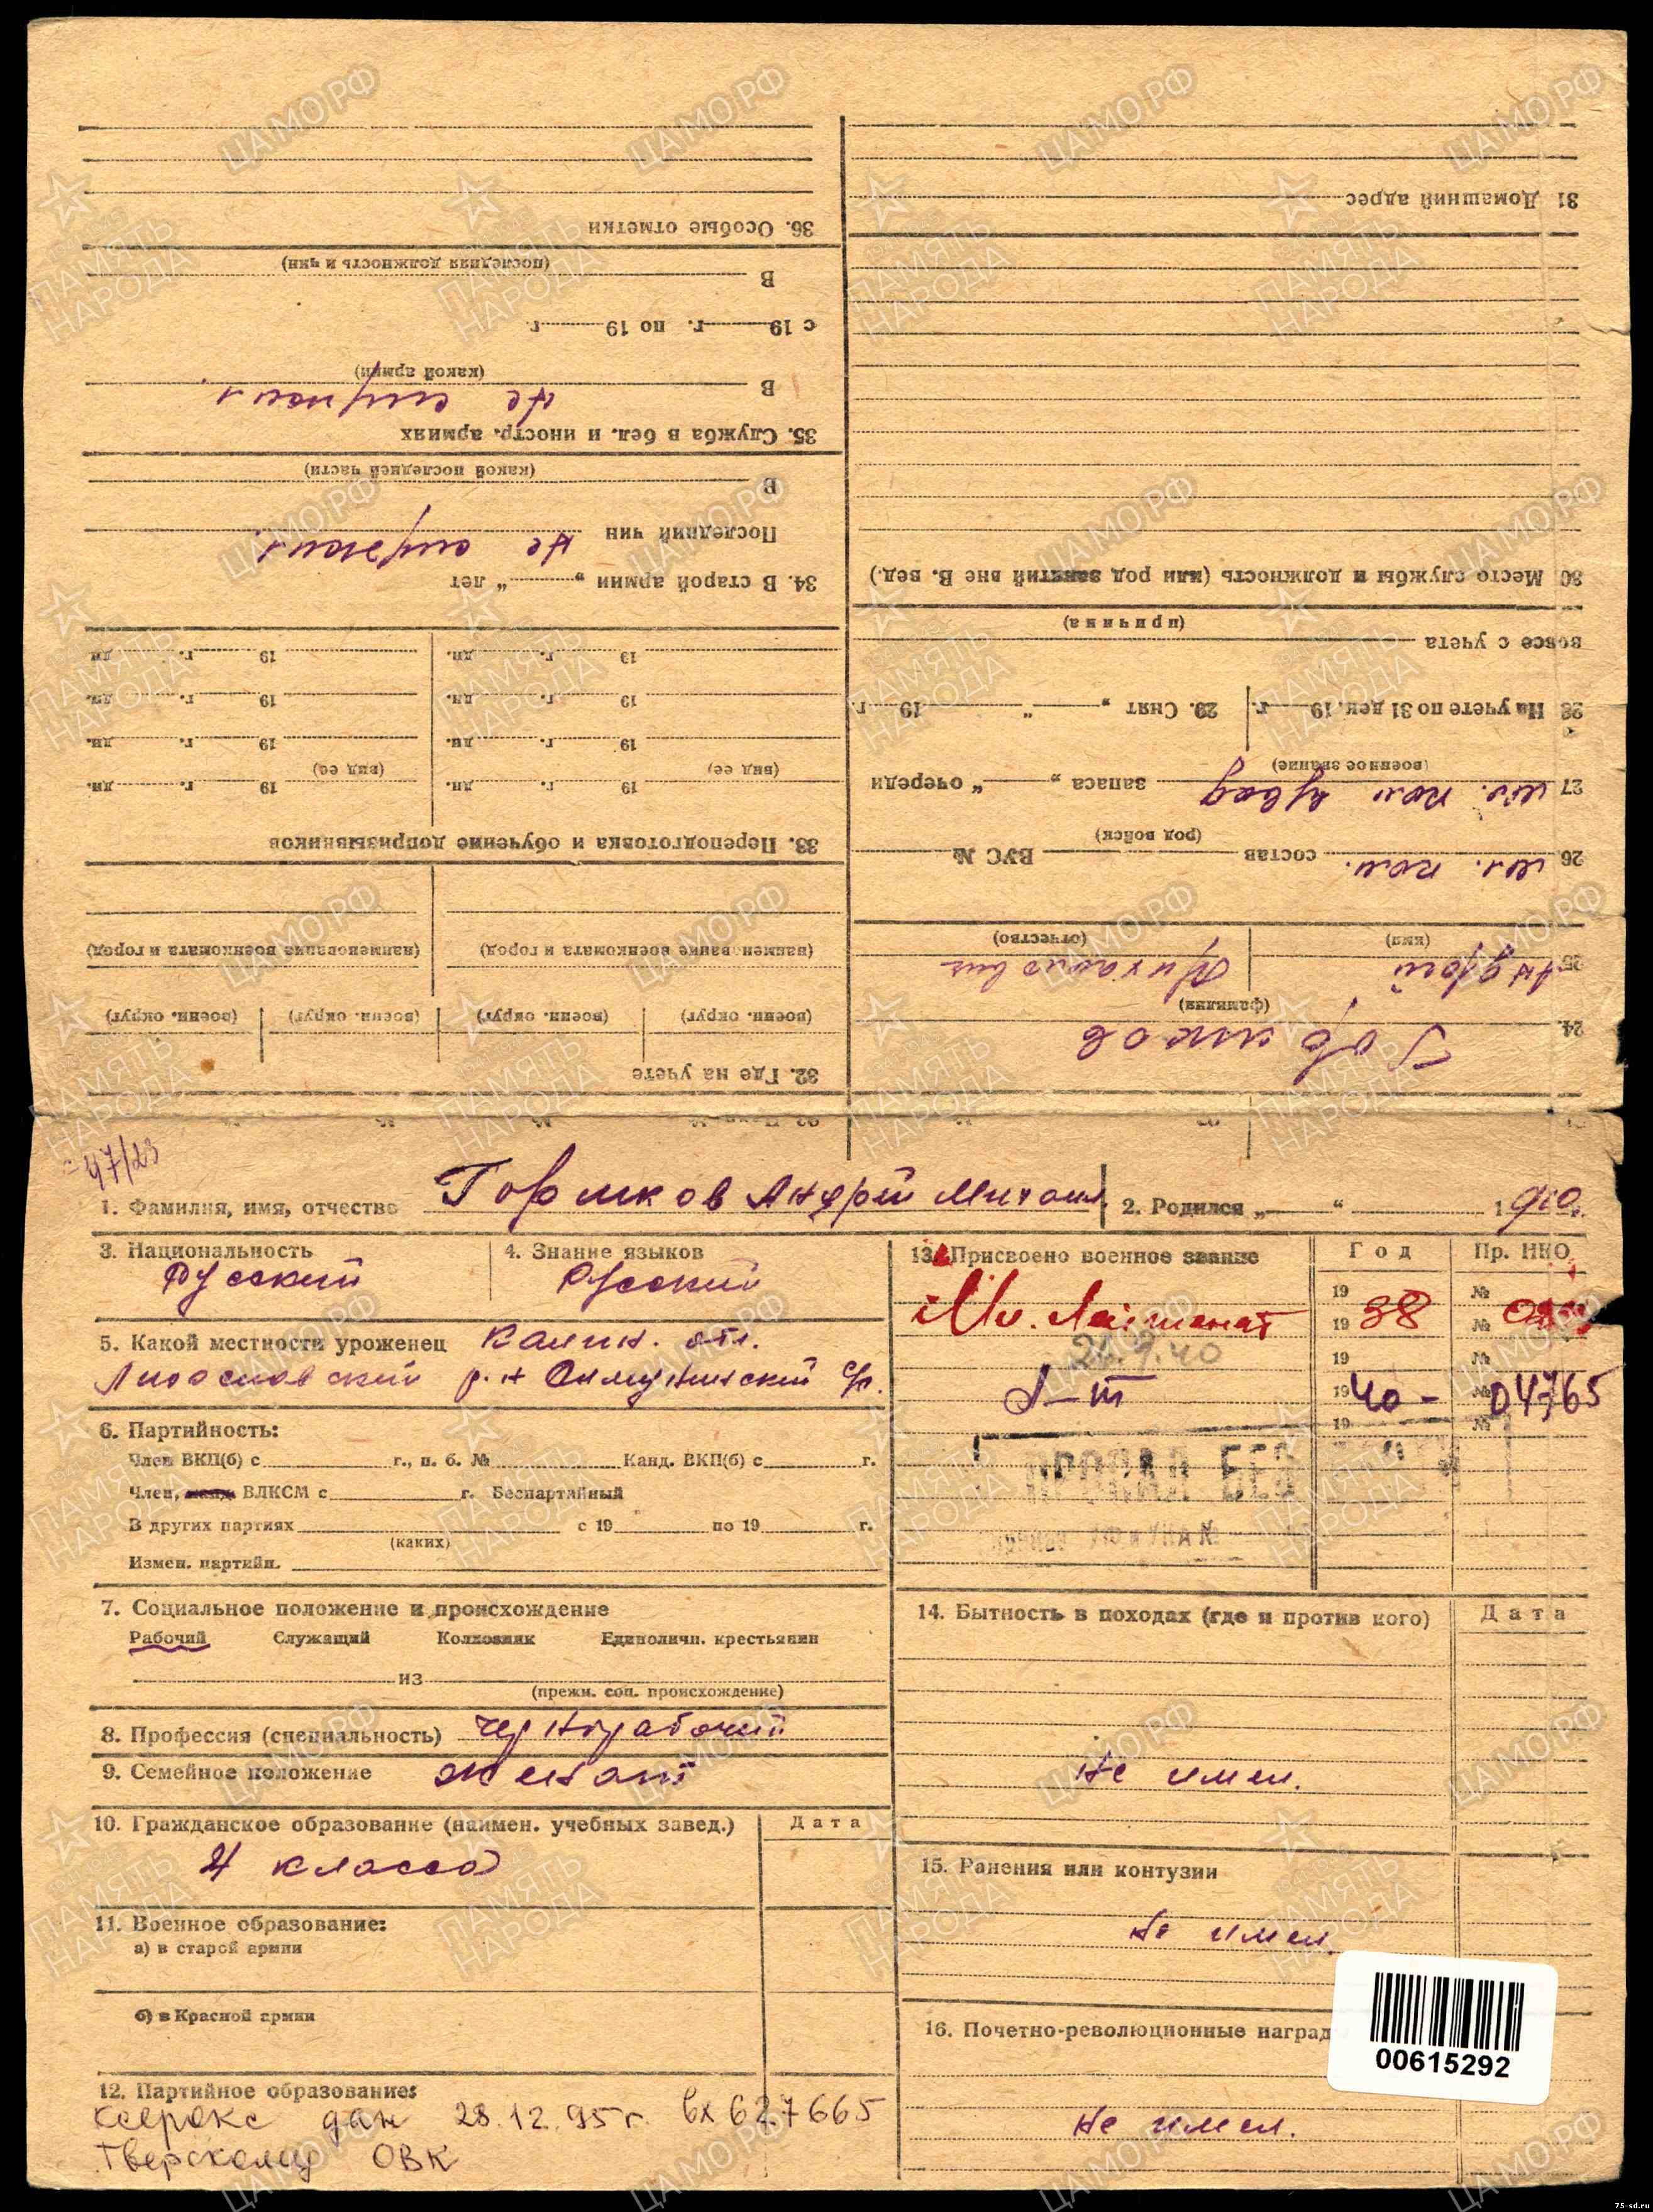 31 Домашний адрес
30 Место службы и должность (или род занятий вне В. вед.)
(причина)
вовсе с учета
28 На учете по 31 дек. 19 г. 29. Снят „ “ 19 г.
27 мл. ком взвод запаса „ “ очереди
(военное звание)
26 мл. ком. состав ВУС №
(род войск)
25 Андрей Михайлович
(имя) (отчество)
24. Горшков
(фамилия)
36. Особые отметки
(последняя должность и чин)
В
с 19 г. по 19 г.
(какой армии)
В не служил
35. Служба в бел. и иностр. армиях
(какой последней части)
В
Последний чин не служил.
34. В старой армии „ “ лет
19 г. дн. 19 г. дн.
19 г. дн. 19 г. дн.
19 г. дн. 19 г. дн.
(вид ее) (вид ее)
19 г. дн. 19 г. дн.
33. Переподготовка и обучение допризывников
(наименование военкомата и город) (наименование военкомата и город)
(воен. округ) (воен. округ) (воен. округ) (воен. округ)
32. Где на учете
47/23
1. Фамилия, имя, отчество Горшков Андрей Михаил 2. Родился „ “ 1910.
3. Национальность 4. Знание языков
Русский Русский
5. Какой местности уроженец Калин. обл.
Лихославский р-н
6. Партийность:
Член ВКП(б) с г., п. б. № Канд. ВКП(б) с г.
Член, ВЛКСМ с г. Беспартийный
В других партиях с 19 по 19 г.
(каких)
Измен. партийн.
7. Социальное положение и происхождение
Рабочий Служащий Колхозник Единоличн. крестьянин
из
(прежн. соц. происхождение)
8. Профессия (специальность) чернорабочий
9. Семейное положение женат
10. Гражданское образование (наимен. учебных завед.) Дата
4 класса
11. Военное образование:
а) в старой армии
б) в Красной армии
12. Партийное образование:
ксерокс дан 28.12.95г. вх 627665
Тверскому ОВК
13. Присвоено военное звание Год Пр. НКО
19 №
Мл. Лейтенант 19 38 №
24.9.40 19 №
Л-т 19 40 - № 04765
19 №
ПРОПАЛ БЕЗ
14. Бытность в походах (где и против кого) Дата
Не имел.
15. Ранения или контузии
Не имел.
16. Почетно-революционные наград
Не имел.
00615292
ЦАМО.РФ
ПАМЯТЬ НАРОДА
75-sd.ru